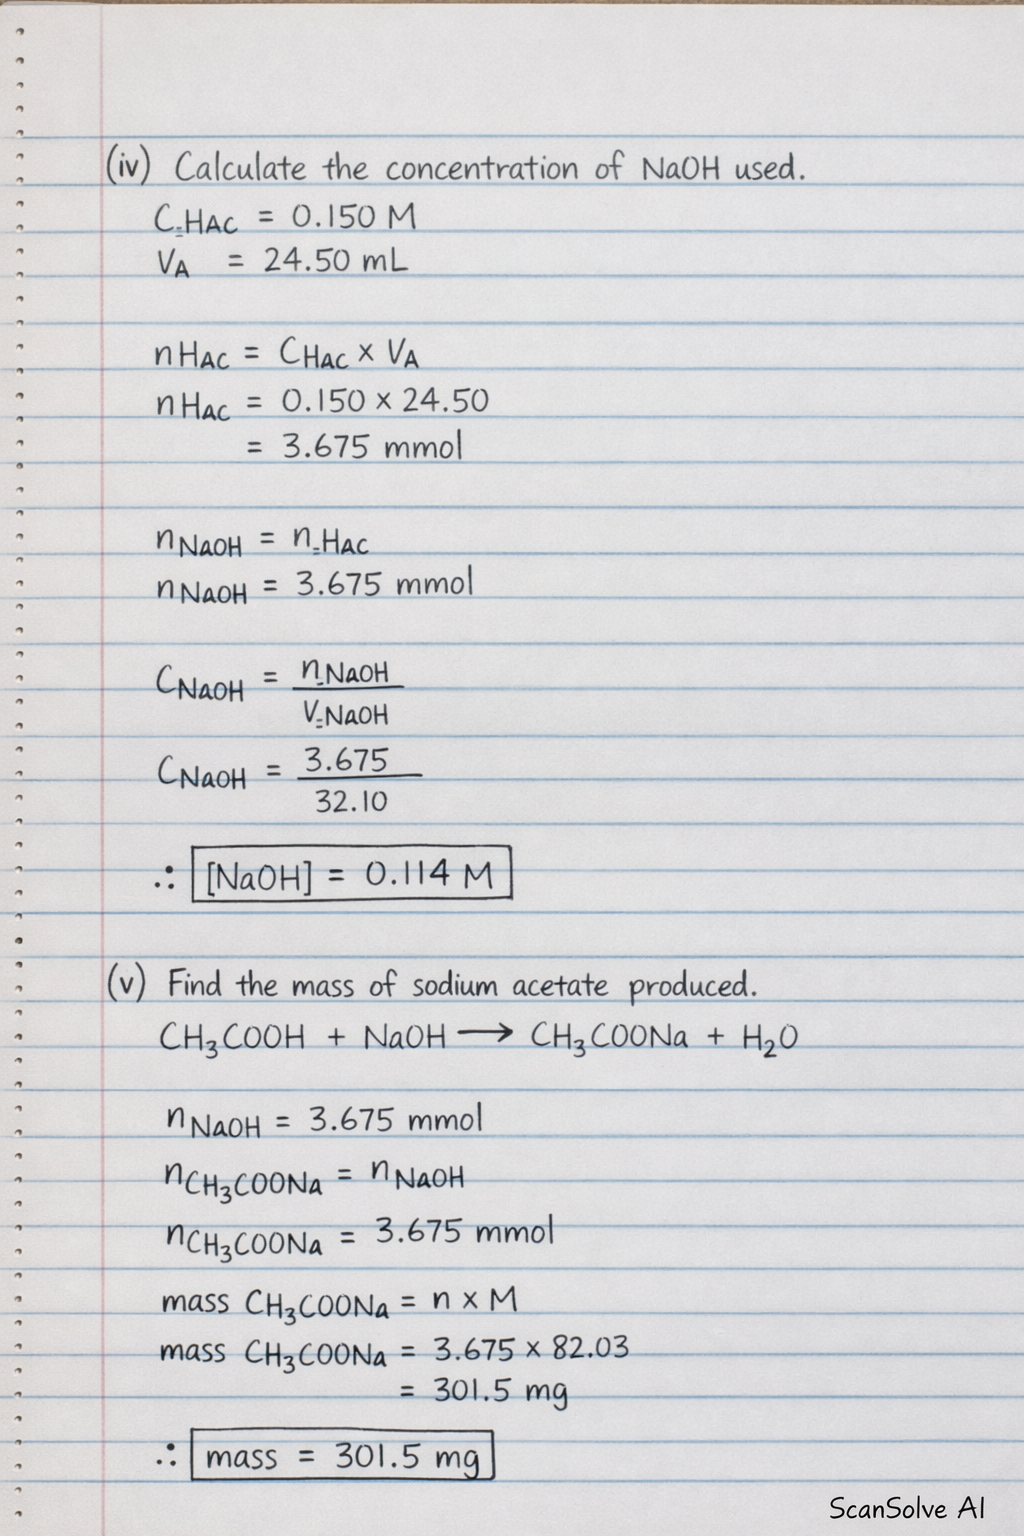 (iv) Calculate the concentration of NaOH used.
C_HAc = 0.150 M
VA = 24.50 mL
nHAc = CHAc × VA
nHAc = 0.150 × 24.50
= 3.675 mmol
nNaOH = n_HAc
nNaOH = 3.675 mmol
CNaOH = n_NaOH
V_NaOH
CNaOH = 3.675
32.10
∴ [NaOH] = 0.114 M
(v) Find the mass of sodium acetate produced.
CH₃COOH + NaOH ⟶ CH₃COONa + H₂O
nNaOH = 3.675 mmol
nCH₃COONa = nNaOH
nCH₃COONa = 3.675 mmol
mass CH₃COONa = n × M
mass CH₃COONa = 3.675 × 82.03
= 301.5 mg
∴ mass = 301.5 mg
ScanSolve AI